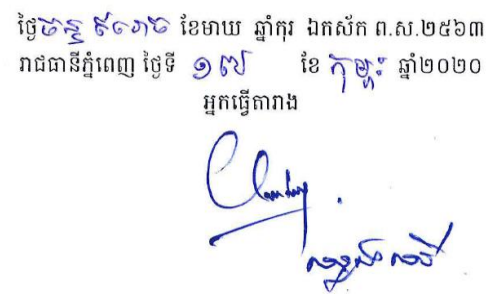 ថ្ងៃចន្ទ ៩រោច ខែមាឃ ឆ្នាំកុរ ឯកស័ក ព.ស.២៥៦៣
រាជធានីភ្នំពេញ ថ្ងៃទី ១៧ ខែ កុម្ភៈ ឆ្នាំ២០២០
អ្នកធ្វើតារាង